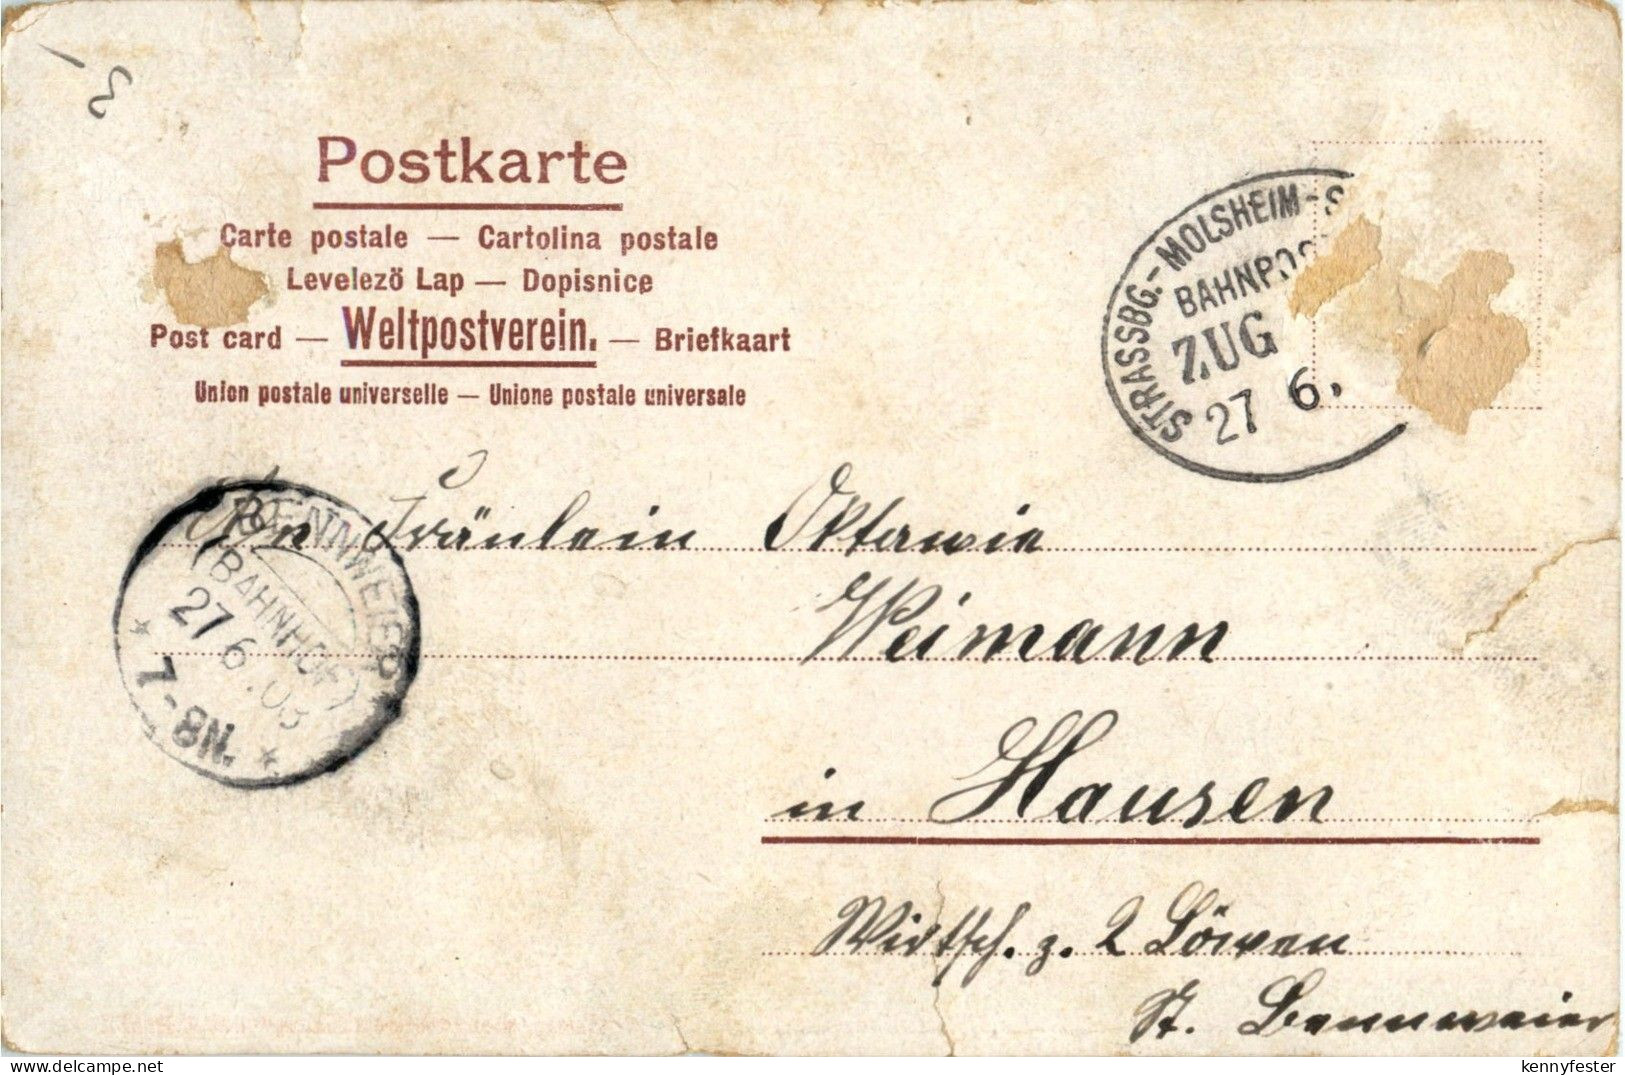 3
Postkarte
Carte postale — Cartolina postale
Levelező Lap — Dopisnice
Post card — Weltpostverein. — Briefkaart
Union postale universelle — Unione postale universale
STRASSBG.-MOLSHEIM-S
BAHNPOS
ZUG
27 6.
BENNWEIER
(BAHNHOF)
27 6.03
7-8N.
An Fräulein Oktawie
Weimann
in Hausen
Wirtsch. z. 2 Löwen
St. Bennweier
delcampe.net
kennyfester